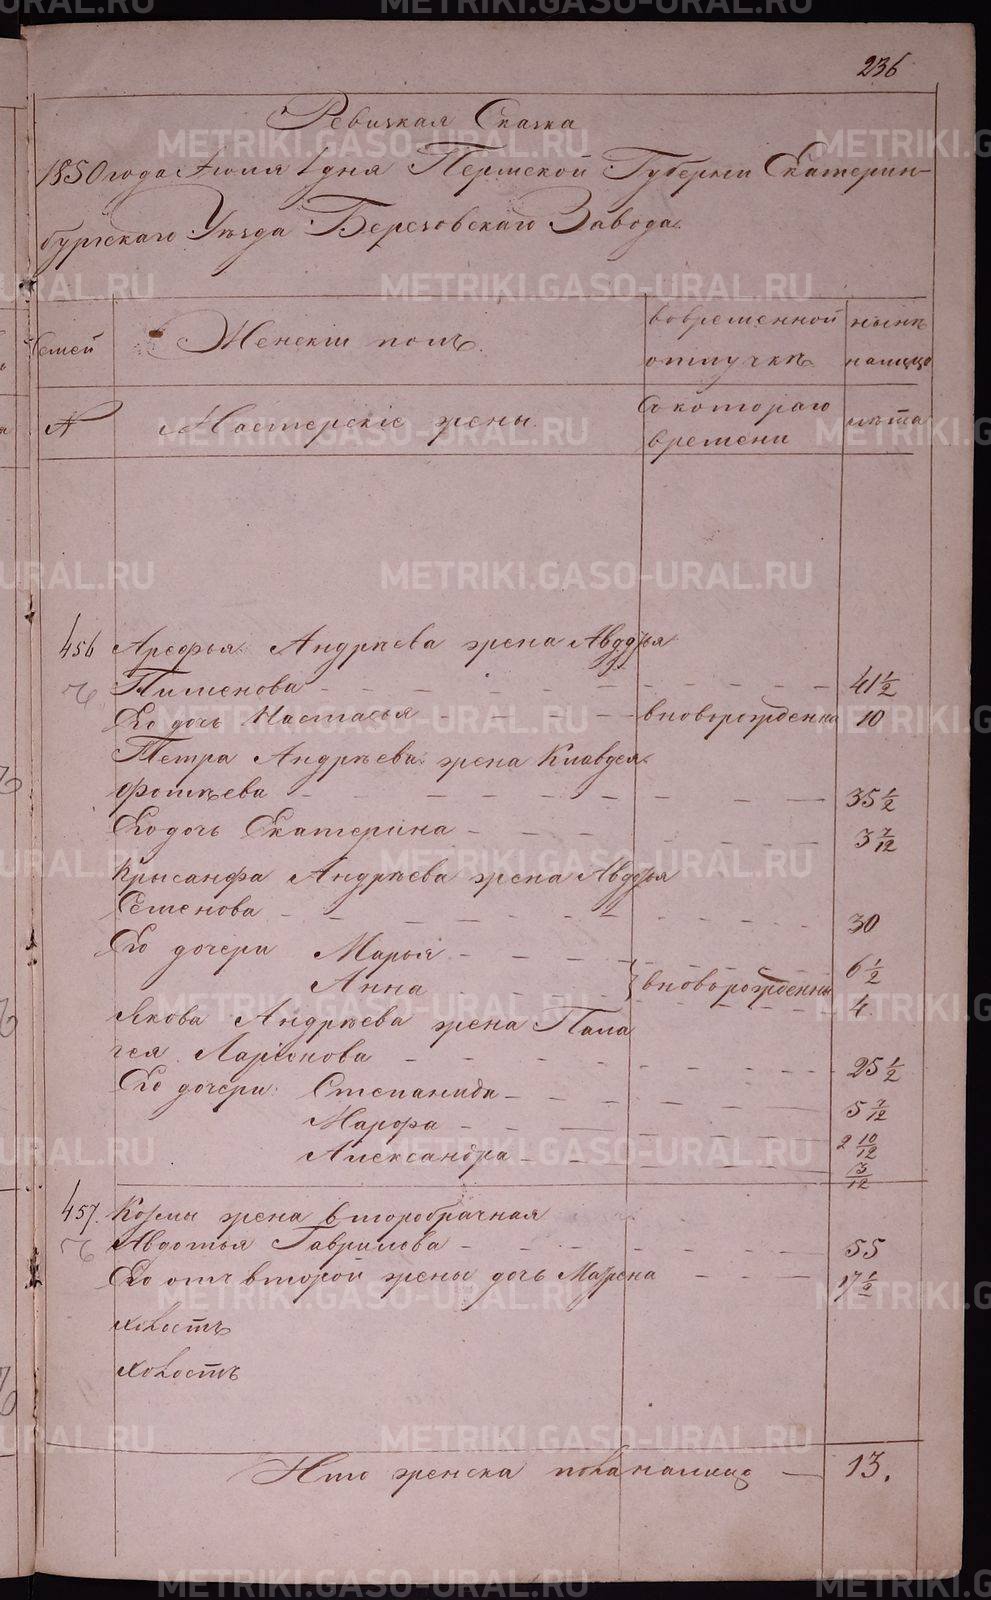 236
Ревизкая Сказка
1850 года Июля 1 дня Пермской Губернии Екатерин-
бургскаго Уезда Березовскаго Завода.
Семей
Женский полъ.
во временной
отлучкѣ
нынѣ
на лицо
№
Мастерскіе жены.
Съ котораго
времени
лѣта
456 Арефья Андрѣева жена Авдотья
Пименова - - - 41 1/2
Его дочь Настасья - - - вноворожденна 10
Петра Андрѣева жена Клавдея
Фотѣева - - - 35 1/2
Его дочь Екатерина - - - 3 7/12
Крысанфа Андрѣева жена Авдотья
Семенова - - - 30
Его дочери Марья - - - 6 1/2
Анна - - - вноворожденны 4
Якова Андрѣева жена Пала
гея Ларіонова - - - 25 1/2
Его дочери: Степанида - - - 5 7/12
Марфа - - - 2 10/12
Александра - - - 3/12
457. Козмы жена второбрачная
Авдотья Гаврилова - - - 55
Его отъ второй жены дочь Матрена - - - 17 1/2
холостъ
холостъ
Итого женска пола на лицо — 13.
METRIKI.GASO-URAL.RU